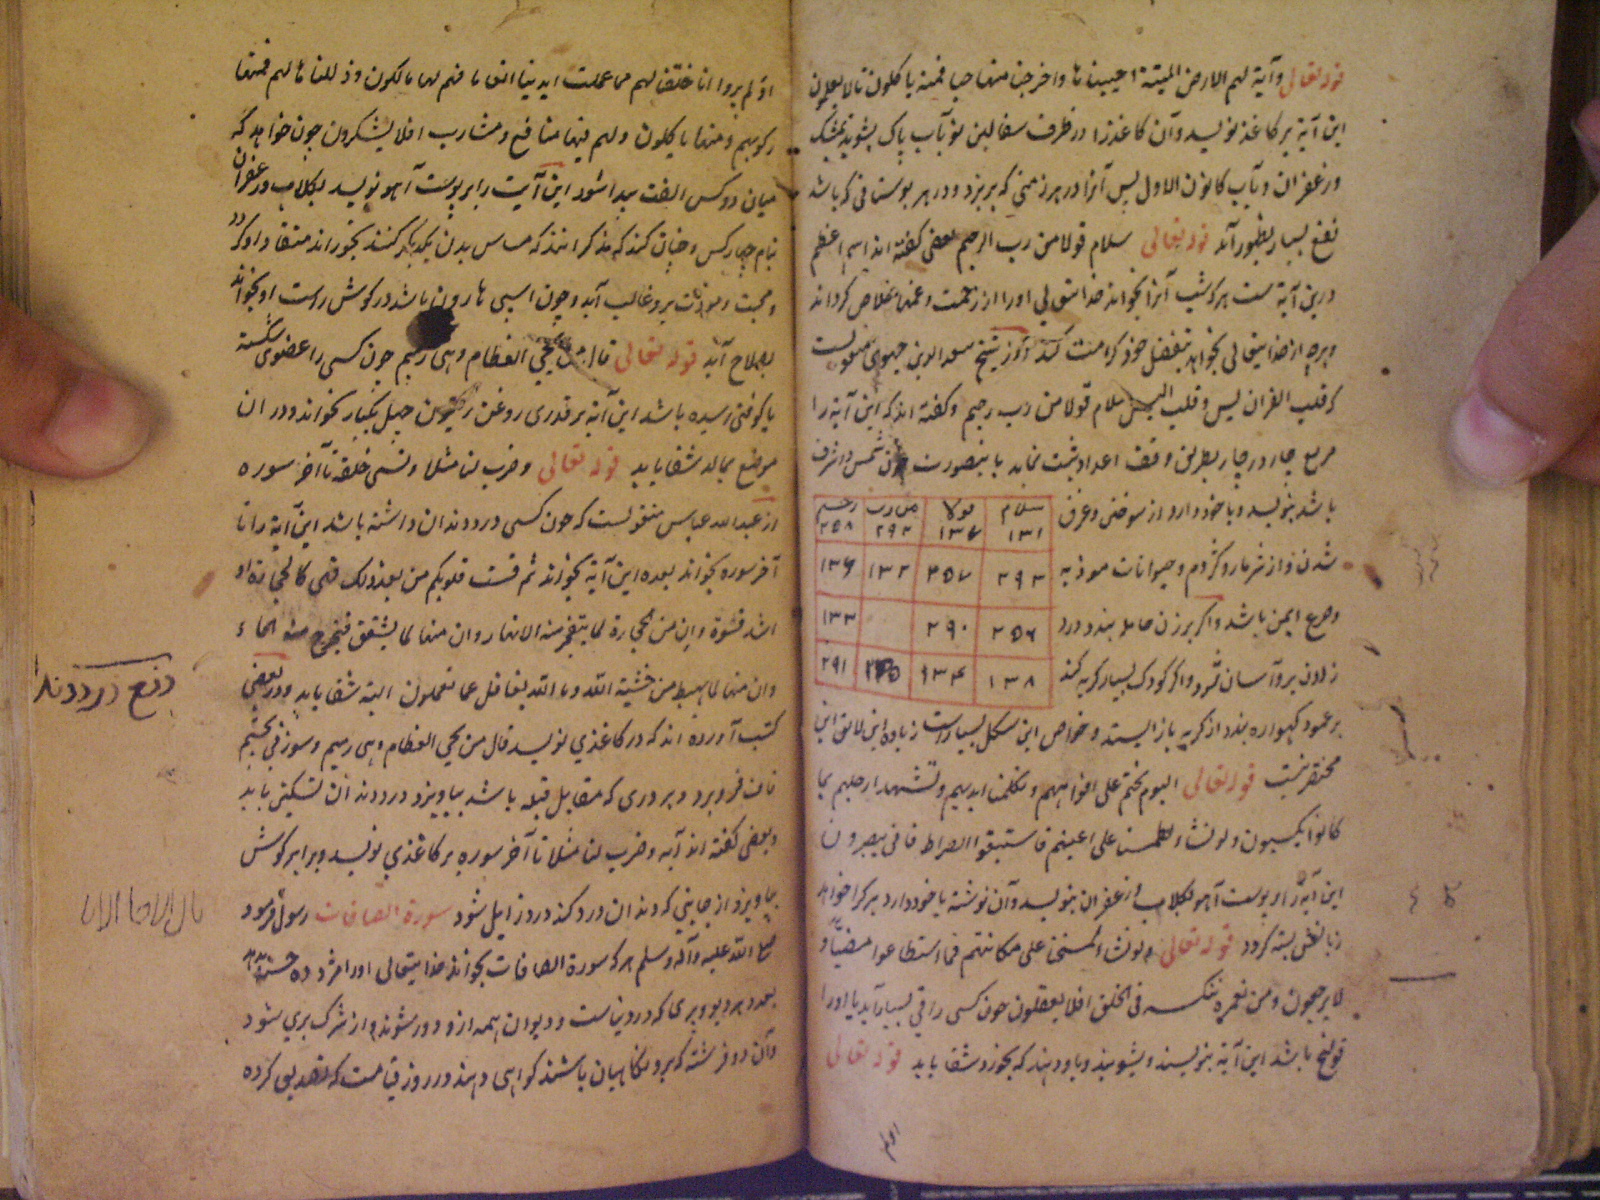 قوله تعالی وآیة لهم الارض المیتة احییناها واخرجنا منها حبا فمنه یاکلون تا لا یعلمون
این آیة بر کاغذ نویسد وآن کاغذ را در ظرف سفالین نو بآب پاک بشوید بمشک
وزعفران وبآب کانون الاول پس آنرا در هر زمینی که بریزد ودر هر بوستانی که باشد
نفع بسیار بظهور آید قوله تعالی سلام قولا من رب الرحیم بعضی گفته اند اسم اعظم
درین آیة ست هر که شب آنرا بخواند خدایتعالی اورا از زحمت وغمها خلاص کرداند
وهرچه از خدایتعالی بخواهد بفضل خود کرامت کند واز شیخ سعد الدین حموی منقولست
که قلب القران یس وقلب الیس سلام قولا من رب رحیم وگفته اند که این آیة را
مربع چار در چار بطریق وفق اعداد ثبت نماید باینصورت چون شمس در شرف
باشد بنویسد وبا خود دارد از سوختن وغرق
سلام ۱۳۱ قولا ۱۳۷ من رب ۲۹۲ رحیم ۲۵۸
شدن واز شر مار وکژدم وحیوانات موذیه
۲۹۳ ۲۵۷ ۱۳۲ ۱۳۶
وصرع ایمن باشد واکر بر زن حامله بندد درد
۲۵۶ ۲۹۰ ۱۳۳
زادن برو آسان شود واکر کودک بسیار کریه کند
۱۳۸ ۱۳۴ ۲۹۱
بر عمود کهواره بندد از کریه باز ایستد وخواص این شکل بسیارست زیاده این لایق این
مختصر نیست قوله تعالی الیوم نختم علی افواههم وتکلمنا ایدیهم وتشهد ارجلهم بما
کانوا یکسبون ولو نشاء لطمسنا علی اعینهم فاستبقوا الصراط فانی یبصرون
این آیة را بر پوست آهو بکلاب وزعفران بنویسد وآن نوشته با خود دارد هر کرا خواهد
زبانش بسته کردد قوله تعالی ولو نشاء لمسخناهم علی مکانتهم فما استطاعوا مضیا و
لا یرجعون ومن نعمره ننکسه فی الخلق افلا یعقلون چون کسی را قی بسیار آید یا اورا
قولنج باشد این آیة بنویسند وبشویند وباو دهند که بخورد شفا یابد قوله تعالی
اولم
اولم یروا انا خلقنا لهم مما عملت ایدینا انعاما فهم لها مالکون وذللناها لهم فمنها
رکوبهم ومنها یاکلون ولهم فیها منافع ومشارب افلا یشکرون چون خواهد که
میان دو کس الفت پیدا شود این آیت را بر پوست آهو نویسد بکلاب وزعفران
بنام چهار کس وچنان کند که مذکر اند که مساس بدن یکدیکر کنند بخوراند منقاد او کردد
ومحبت ومودت برو غالب آید وچون اسبی حارون باشد در کوش راست او بخواند
بصلاح آید قوله تعالی قال من یحیی العظام وهی رمیم چون کسی را عضوی شکسته
یا کوفتی رسیده باشد این آیة بر قدری روغن زیتون چهل یکبار بخواند ودر ان
موضع بمالد شفا یابد قوله تعالی وضرب لنا مثلا ونسی خلقه تا آخر سوره
از عبدالله عباس منقولست که چون کسی درد دندان داشته باشد این آیة را تا
آخر سوره بخواند بعده این آیة بخواند ثم قست قلوبکم من بعد ذلک فهی کالحجارة او
اشد قسوة وان من الحجارة لما یتفجر منه الانهار وان منها لما یشقق فیخرج منه الماء
وان منها لما یهبط من خشیة الله وما الله بغافل عما تعملون البته شفا یابد ودر بعضی
دفع درد دندان
کتب آورده اند که در کاغذی نویسد قال من یحیی العظام وهی رمیم وسوزنی بمیم
فرو برد وبر دری که مقابل قبله باشد بیاویزد درد دندان تسکین یابد
وبعضی گفته اند آیه وضرب لنا مثلا تا آخر سوره بر کاغذی نویسد وبرابر کوش
بیاویزد از جانبی که دندان درد کند درد زایل شود سورة الصافات رسول فرمود
صلی الله علیه وآله وسلم هر که سورة الصافات بخواند خدایتعالی اورا مزد ده حسنه دهد
بعدد هر دیو وپری که در دنیاست ودیوان همه ازو دور شوند واز شرک بری شود
وآن دو فرشته که برو نکاهبان باشند کواهی دهند در روز قیامت که تصدیق کرده